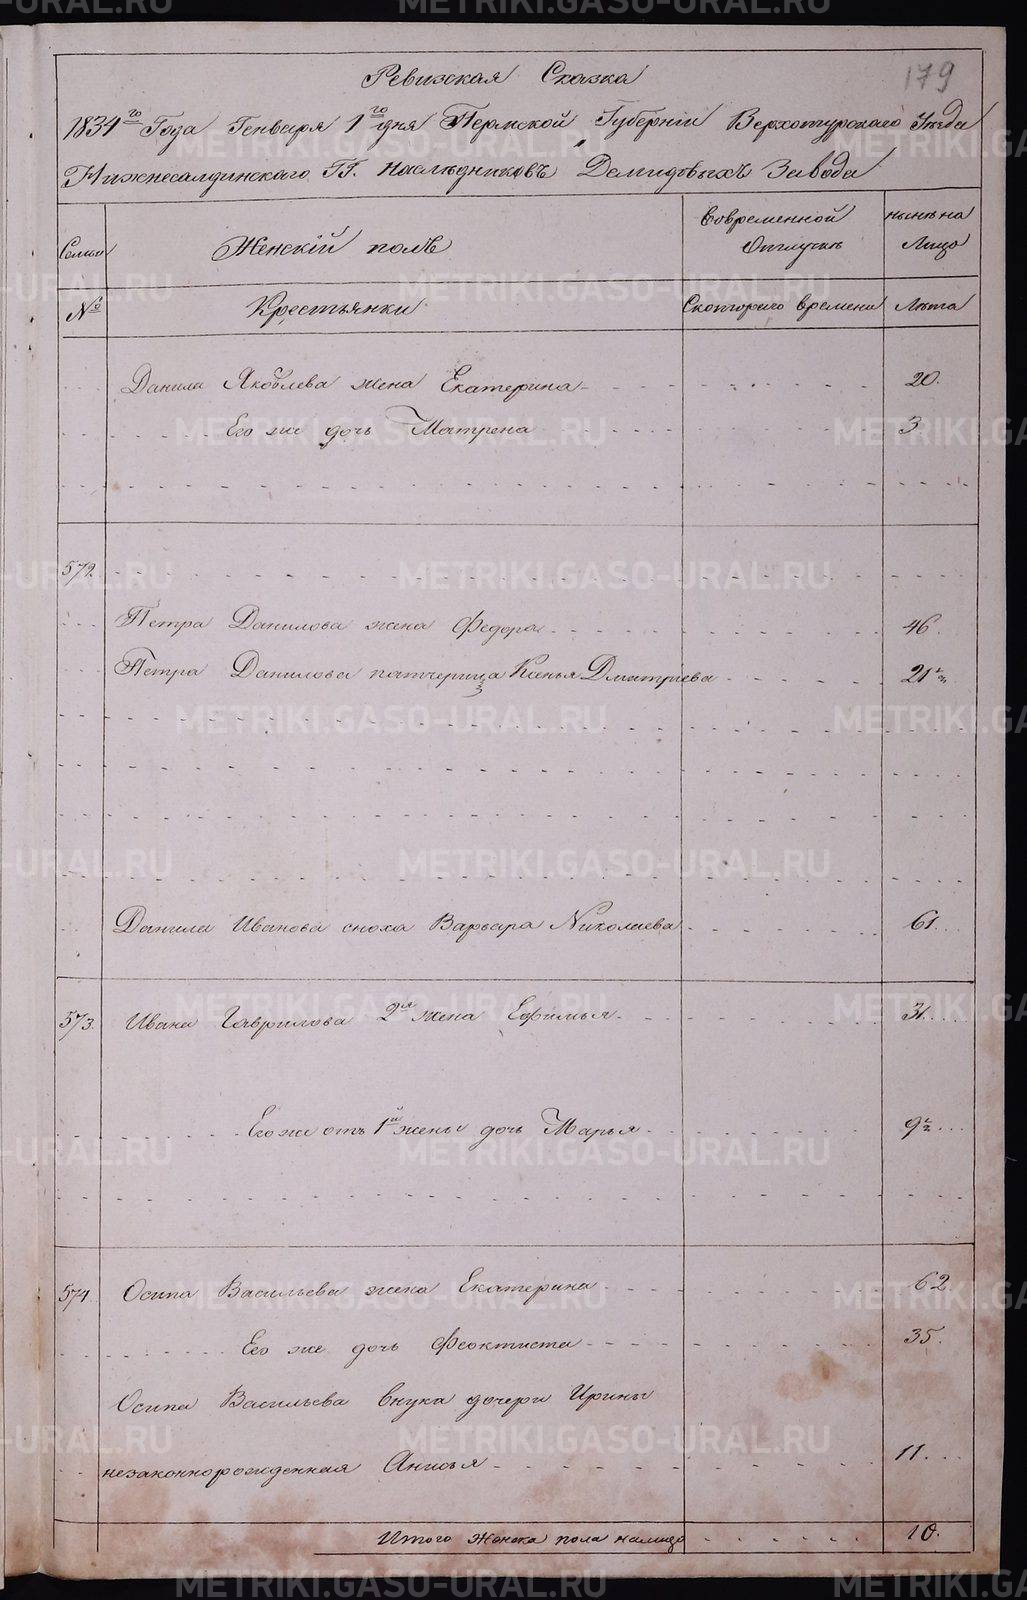 179
Ревизская Сказка
1834го Года Генваря 1го дня Пермской Губернiи Верхотурскаго Уѣзда
Нижнесалдинскаго ГГ. Наслѣдниковъ Демидовыхъ Завода
Семьи Женскiй полъ Вовременной Отлучкѣ нынѣ на Лицо
№ Крестьянки Скотораго времени Лѣта
Данила Яковлева жена Екатерина 20.
Его же дочь Матрена 3
572.
Петра Данилова жена Федора 46.
Петра Данилова патчерица Ксенья Дмитрiева 21½
Данила Иванова сноха Варвара Николаева 61.
573. Ивана Гаврилова 2я жена Ефимья 31.
Его же отъ 1й жены дочь Марья 9½
574. Осипа Васильева жена Екатерина 62.
Его же дочь Феоктиста 35.
Осипа Васильева внука дочери Ирины
незаконнорожденная Анисья 11.
Итого Женска пола налицо 10.
METRIKI.GASO-URAL.RU